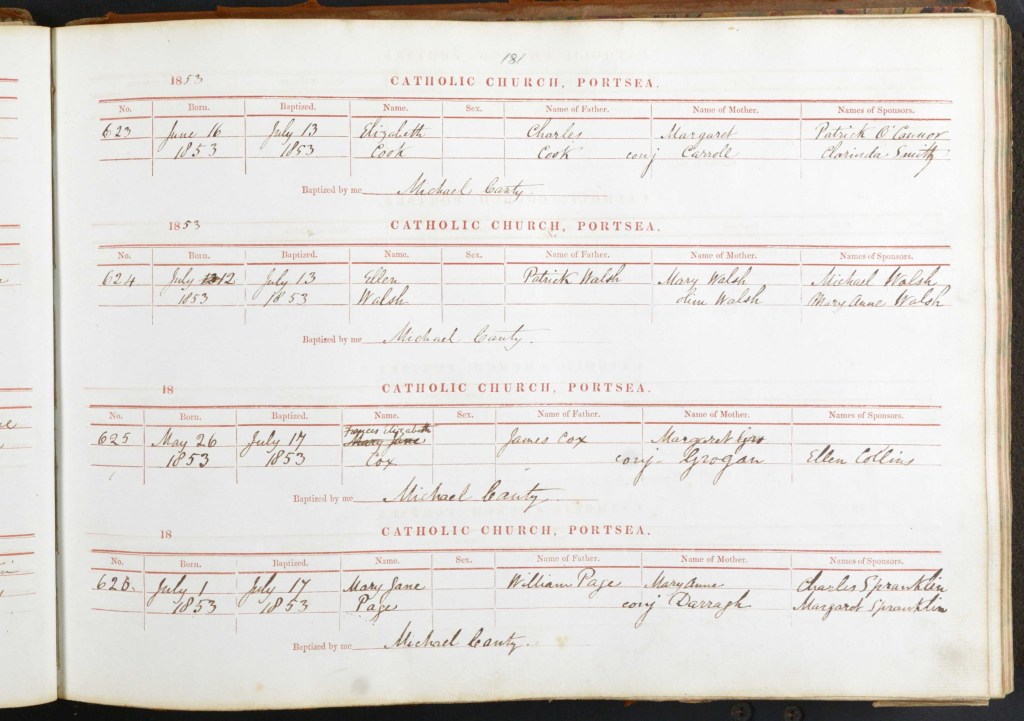 181
1853 CATHOLIC CHURCH, PORTSEA.
No. Born. Baptized. Name. Sex. Name of Father. Name of Mother. Names of Sponsors.
623 June 16 July 13 Elizabeth Charles Margaret Patrick O'Connor
1853 1853 Cook Cook conj Carroll Clarinda Smith
Baptized by me Michael Canty
1853 CATHOLIC CHURCH, PORTSEA.
No. Born. Baptized. Name. Sex. Name of Father. Name of Mother. Names of Sponsors.
624 July 12 July 13 Ellen Patrick Walsh Mary Walsh Michael Walsh
1853 1853 Walsh olim Walsh Mary Anne Walsh
Baptized by me Michael Canty.
18 CATHOLIC CHURCH, PORTSEA.
No. Born. Baptized. Name. Sex. Name of Father. Name of Mother.
Frances Elizabeth
625 May 26 July 17 Mary Jane James Cox Margaret
1853 1853 Cox conj Grogan Ellen Collins
Baptized by me Michael Canty.
18 CATHOLIC CHURCH, PORTSEA.
No. Born. Baptized. Name. Sex. Name of Father. Name of Mother. Names of Sponsors.
626. July 1 July 17 Mary Jane William Page Mary Anne Charles Spranklin
1853 1853 Page conj Darragh Margaret Spranklin
Baptized by me Michael Canty.